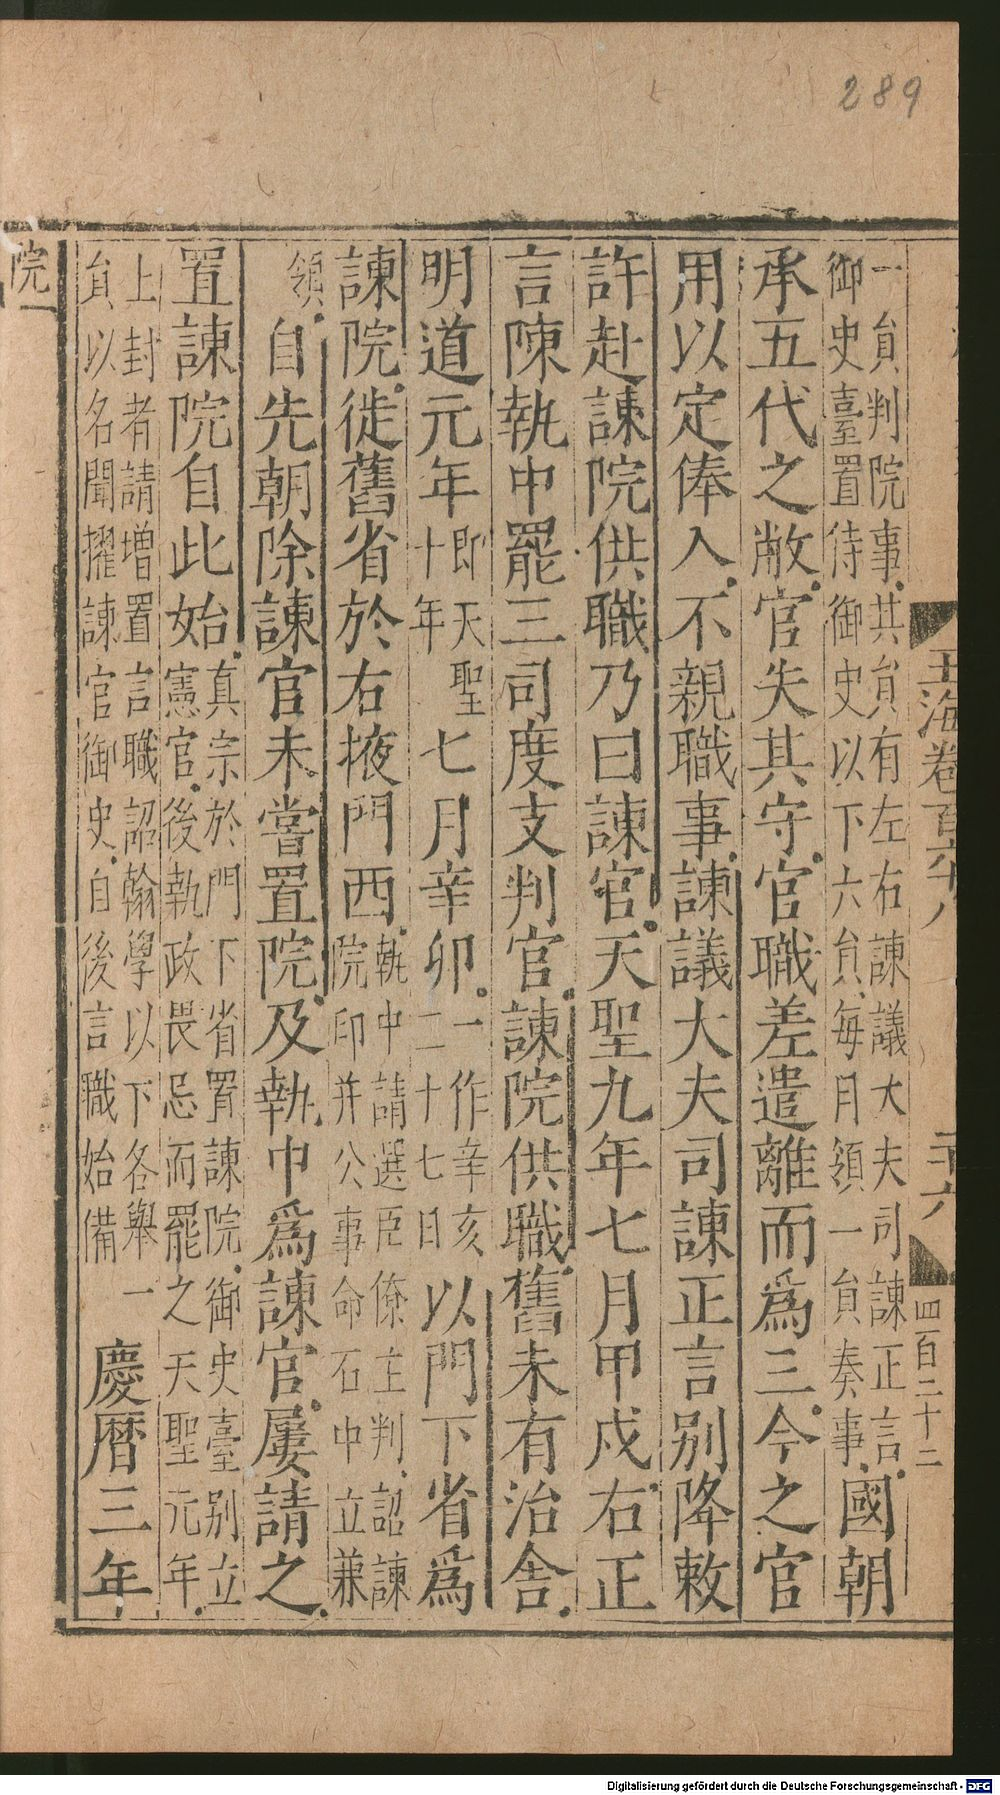 289
玉海卷百六十八
二十六
四百二十二
一貟判院事共貟有左右諫議大夫司諫正言
御史臺置侍御史以下六貟每月領一貟奏事國朝
承五代之敝官失其守官職差遣離而爲三今之官
用以定俸入不親職事諫議大夫司諫正言别降敕
許赴諫院供職乃曰諫官天聖九年七月甲戌右正
言陳執中罷三司度支判官諫院供職舊未有治舍
明道元年即天聖十年七月辛卯一作辛亥二十七日以門下省爲
諫院徙舊省於右掖門西執中請選臣僚主判詔諫院印并公事命石中立兼
領自先朝除諫官未嘗置院及執中爲諫官屢請之
置諫院自此始真宗於門下省置諫院御史臺别立憲官後執政畏忌而罷之天聖元年
上封者請增置言職詔翰學以下各舉一貟以名聞擢諫官御史自後言職始備慶曆三年
院一
Digitalisierung gefördert durch die Deutsche Forschungsgemeinschaft - DFG